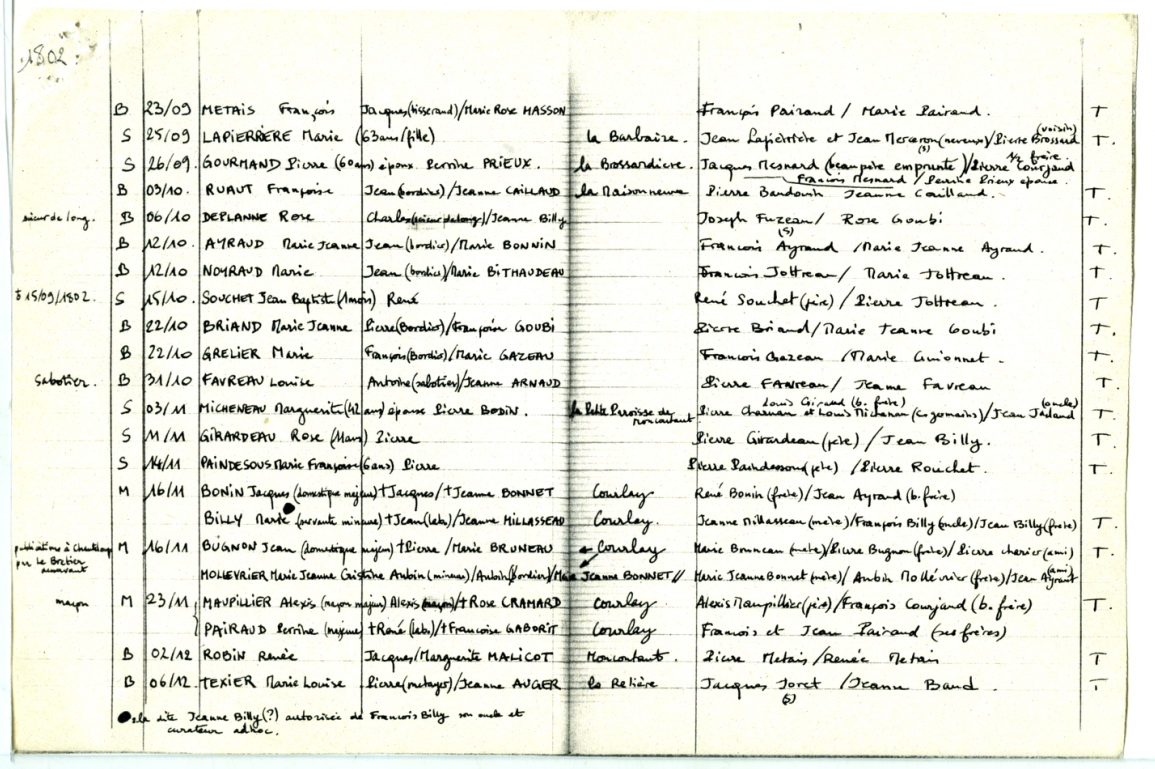 1802.
B 23/09 METAIS François Jacques (tisserand)/Marie Rose MASSON François Pairaud / Marie Pairaud. T
(voisin)
S 25/09 LAPIERRERE Marie (63ans/fille) la Barbaire. Jean Lapierrière et Jean Merceron (neveux)/Pierre Brossard T.
(s) 1/2 frère
S 26/09. GOURMAND Pierre (60 ans) époux. Perrine PRIEUX. la Brossardiere. Jacques Mesnard (beau père emprunte)/Pierre Courjaud
François Mesnard / Perrine Prieux épouse.
B 03/10. RUAUT Françoise Jean (bordier)/Jeanne CAILLAUD la Maison neuve Pierre Baudouin Jeanne Caillaud. T.
sieur de long. B 06/10 DEPLANNE Rose Charles (sieur de long)/Jeanne Billy Joseph Fuzeau/ Rose Goubi T.
(s)
B 12/10. AYRAUD Marie Jeanne Jean (bordier)/Marie BONNIN François Ayraud /Marie Jeanne Ayraud. T.
B 12/10 NOYRAUD Marie Jean (bordier)/Marie BITHAUDEAU François Jottreau/ Marie Jottreau. T.
† 15/09/1802. S 15/10. SOUCHET Jean Baptiste (1mois) René René Souchet (père) / Pierre Jottreau. T
B 22/10 BRIAND Marie Jeanne Pierre (Bordier)/Françoise GOUBI Pierre Briand/Marie Jeanne Goubi T.
B 22/10 GRELIER Marie François (Bordier)/Marie GAZEAU François Gazeau /Marie Guionnet. T.
sabotier. B 31/10 FAVREAU Louise Antoine (sabotier)/Jeanne ARNAUD Pierre FAVREAU/ Jeanne Favreau T.
Louis Giraud (b. frère) (oncle)
S 03/11 MICHENEAU Marguerite (42 ans) épouse Pierre BODIN. la Petite Paroisse de Pierre et Louis Micheneau (cs germains)/Jean T.
moncoutant
S 11/11 GIRARDEAU Rose Pierre Pierre Girardeau (père) / Jean Billy. T.
S 14/11 PAINDESOUS Marie Françoise (6ans) Pierre Pierre Paindessous (père) /Pierre Rouchet. T.
M 16/11 BONIN Jacques (domestique majeur) †Jacques/ †Jeanne BONNET Courlay René Bonin (frère)/Jean Ayraud (b. frère)
BILLY Marie (servante mineure) †Jean (labr.)/Jeanne MILLASSEAU Courlay. Jeanne Millasseau (mère)/François Billy (oncle)/Jean Billy (frère) T.
publications à Chantelou M 16/11 BUGNON Jean (domestique majeur) †Pierre /Marie BRUNEAU Courlay Marie Bruneau (mère)/Pierre Bugnon (frère)/ Pierre charier (ami) T.
par le Bretier
(ami)
MOLLEVRIER Marie Jeanne Cristine Aubin (mineure)/Aubin (bordier)/Marie Jeanne BONNET // Marie Jeanne Bonnet (mère)/ Aubin Mollévrier (frère)/Jean Ayraut
maçon M 23/11 MAUPILLIER Alexis (maçon majeur) Alexis (maçon)/†Rose CRAMARD Courlay Alexis Maupillier (père)/François Courjaud (b. frère) T.
PAIRAUD Perrine (majeure) †René (labr.)/†Francoise GABORIT Courlay Francois et Jean Pairaud (ses frères)
B 02/12 ROBIN Renée Jacques/Marguerite MALICOT Moncoutant. Pierre Metais /Renée Metais T
B 06/12. TEXIER Marie Louise Pierre (metayer)/Jeanne AUGER la Relière Jacques Joret /Jeanne Baud. T
(s)
la dite Jeanne Billy (?) autorisée de François Billy son oncle et
curateur adhoc.